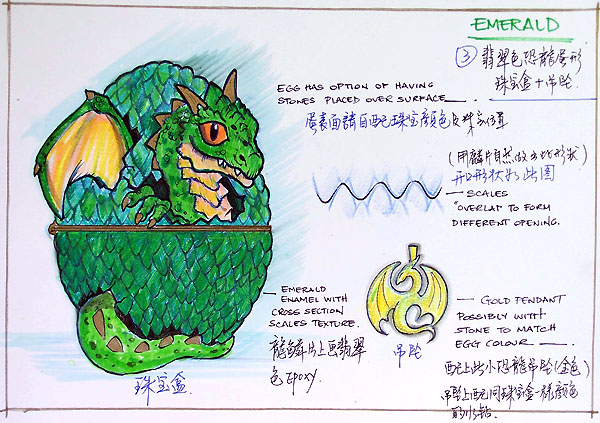 EMERALD
③ 翡翠色恐龍蛋形
珠宝盒+吊坠
EGG HAS OPTION OF HAVING
STONES PLACED OVER SURFACE
蛋表面請自配珠宝顏色及
(用鱗片自然做出此形状)
开口形状如此图
SCALES
"OVERLAP TO FORM
DIFFERENT OPENING.
EMERALD
ENAMEL WITH
CROSS SECTION
SCALES TEXTURE.
龍鱗片上画翡翠
色 EPOXY.
珠宝盒
吊坠
GOLD PENDANT
POSSIBLY WITH
STONE TO MATCH
EGG COLOUR
配上此小恐龍吊坠(金色)
吊坠上配同珠宝盒一样顏色
的小钻.